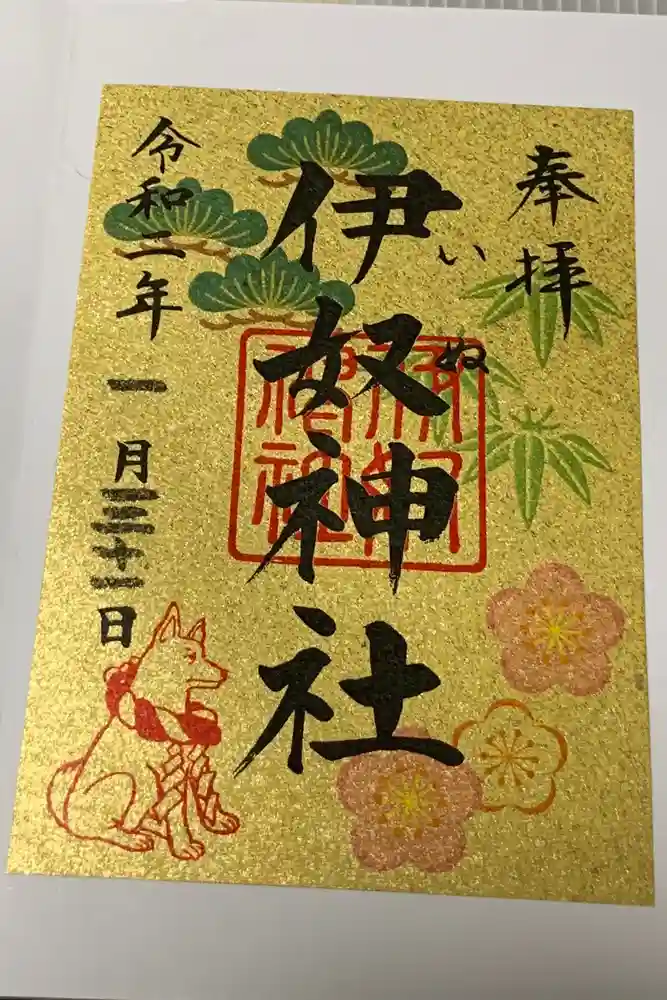 奉拝
いぬ
伊奴神社
令和二年
一月三十一日